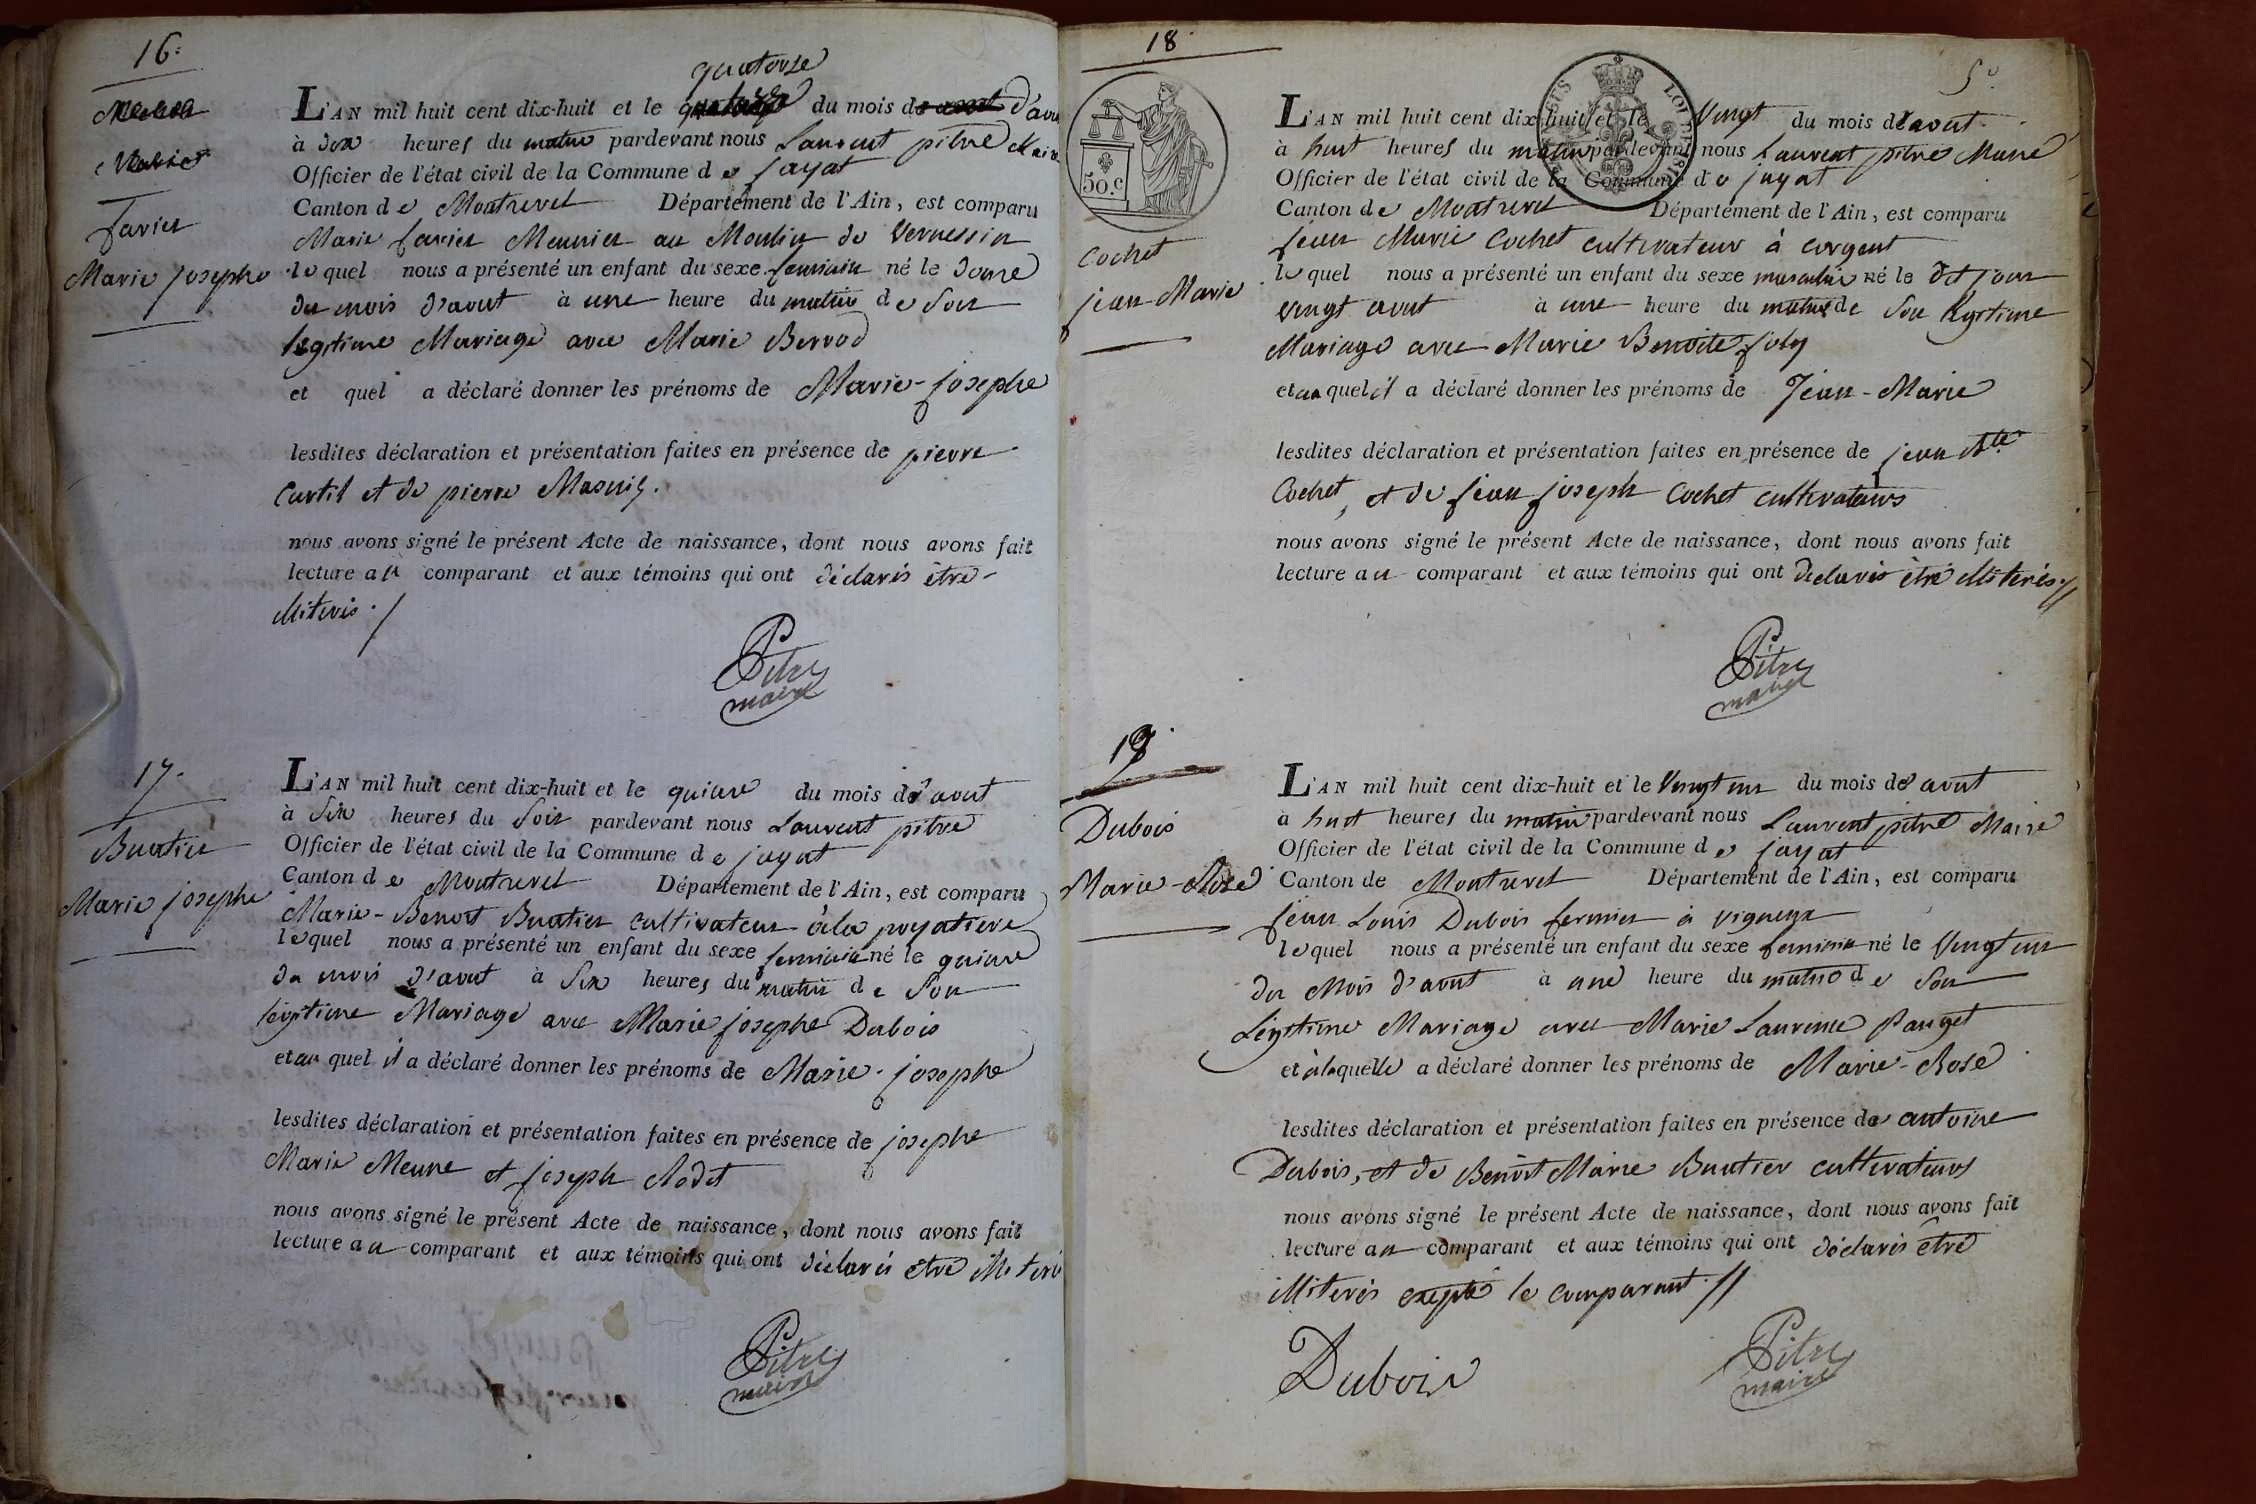 16.
Marie
Favier
Marie josephe
quatorze
L'AN mil huit cent dix-huit et le du mois d'aout
à dix heures du matin pardevant nous Laurent pitre Maire
Officier de l'état civil de la Commune de jayat
Canton de Montrevel Département de l'Ain, est comparu
Marie favier Meunier au Moulin de Vernessin
lequel nous a présenté un enfant du sexe feminin né le douze
du mois d'aout à une heure du matin de Son
legitime Mariage avec Marie Berrod
et quel a déclaré donner les prénoms de Marie-josephe
lesdites déclaration et présentation faites en présence de pierre
Curtil et de pierre Masuis.
nous avons signé le présent Acte de naissance, dont nous avons fait
lecture au comparant et aux témoins qui ont déclarés être
illiterés ./
Pitre
maire
17.
Buatier
Marie josephe
L'AN mil huit cent dix-huit et le quinze du mois d'aout
à Six heures du Soir pardevant nous Laurent pitre
Officier de l'état civil de la Commune de jayat
Canton de Montrevel Département de l'Ain, est comparu
Marie-Benoit Buatier cultivateur à la poyatiere
lequel nous a présenté un enfant du sexe feminin né le quinze
du mois d'aout à Six heures du matin de Son
legitime Mariage avec Marie josephe Dubois
et au quel il a déclaré donner les prénoms de Marie-josephe
lesdites déclaration et présentation faites en présence de josephe
Marie Meune et joseph Rodet
nous avons signé le présent Acte de naissance, dont nous avons fait
lecture au comparant et aux témoins qui ont déclarés être illiterés
Pitre
maire
18
5e
50.c
Cochet
jean-Marie
L'AN mil huit cent dix-huit et le Vingt du mois d'aout
à huit heures du matin pardevant nous Laurent pitre Maire
Officier de l'état civil de la Commune de jayat
Canton de Montrevel Département de l'Ain, est comparu
jean Marie Cochet cultivateur à corgent
lequel nous a présenté un enfant du sexe masculin né le dit jour
vingt aout à une heure du matin de Son legitime
Mariage avec Marie Benoite foby
et au quel il a déclaré donner les prénoms de Jean-Marie
lesdites déclaration et présentation faites en présence de jean Bte
Cochet, et de jean joseph Cochet cultivateurs
nous avons signé le présent Acte de naissance, dont nous avons fait
lecture au comparant et aux témoins qui ont déclarés être illiterés.//
Pitre
maire
19
Dubois
Marie-Rose
L'AN mil huit cent dix-huit et le Vingt un du mois d'aout
à huit heures du matin pardevant nous Laurent pitre Maire
Officier de l'état civil de la Commune de jayat
Canton de Montrevel Département de l'Ain, est comparu
jean Louis Dubois fermier à vigneux
lequel nous a présenté un enfant du sexe feminin né le Vingt un
du Mois d'aout à une heure du matin de Son
Legitime Mariage avec Marie Laurence Pauget
et à laquelle a déclaré donner les prénoms de Marie-Rose
lesdites déclaration et présentation faites en présence de antoine
Dubois, et de Benoit Marie Buatier cultivateurs
nous avons signé le présent Acte de naissance, dont nous avons fait
lecture au comparant et aux témoins qui ont déclarés être
illiterés excpté le comparant.//
Dubois
Pitre
maire